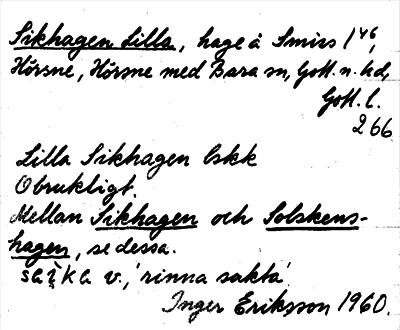 Sikhagen Lilla, hage å Smiss 1⁴⁶,
Hörsne, Hörsne med Bara sn, Gotl. n. hd,
Gotl. l.
266
Lilla Sikhagen lskk
Obrukligt.
Mellan Sikhagen och Solskens-
hagen, se dessa.
saika v., 'rinna sakta'
Inger Eriksson 1960.